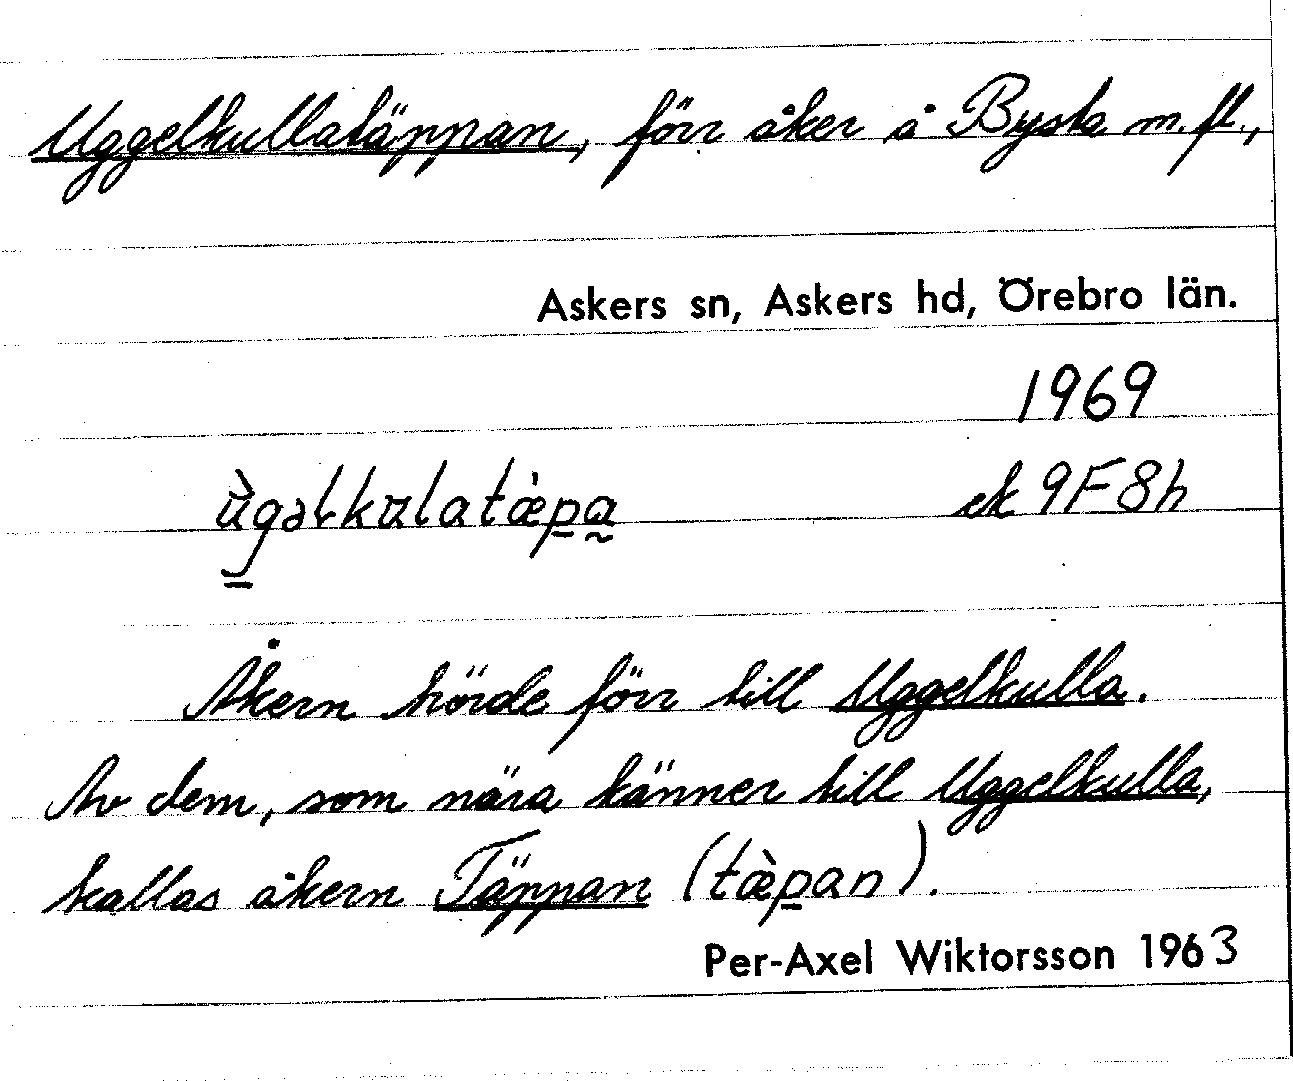 Uggelkullatäppan, förr åker å Bysta m.fl.,
Askers sn, Askers hd, Örebro län.
1969
ùgəlkulatæ̀pa̰ ek 9F8h
Åkern hörde förr till Uggelkulla.
Av dem, som nära känner till Uggelkulla,
kallas åkern Täppan (tæ̀pan).
Per-Axel Wiktorsson 1963